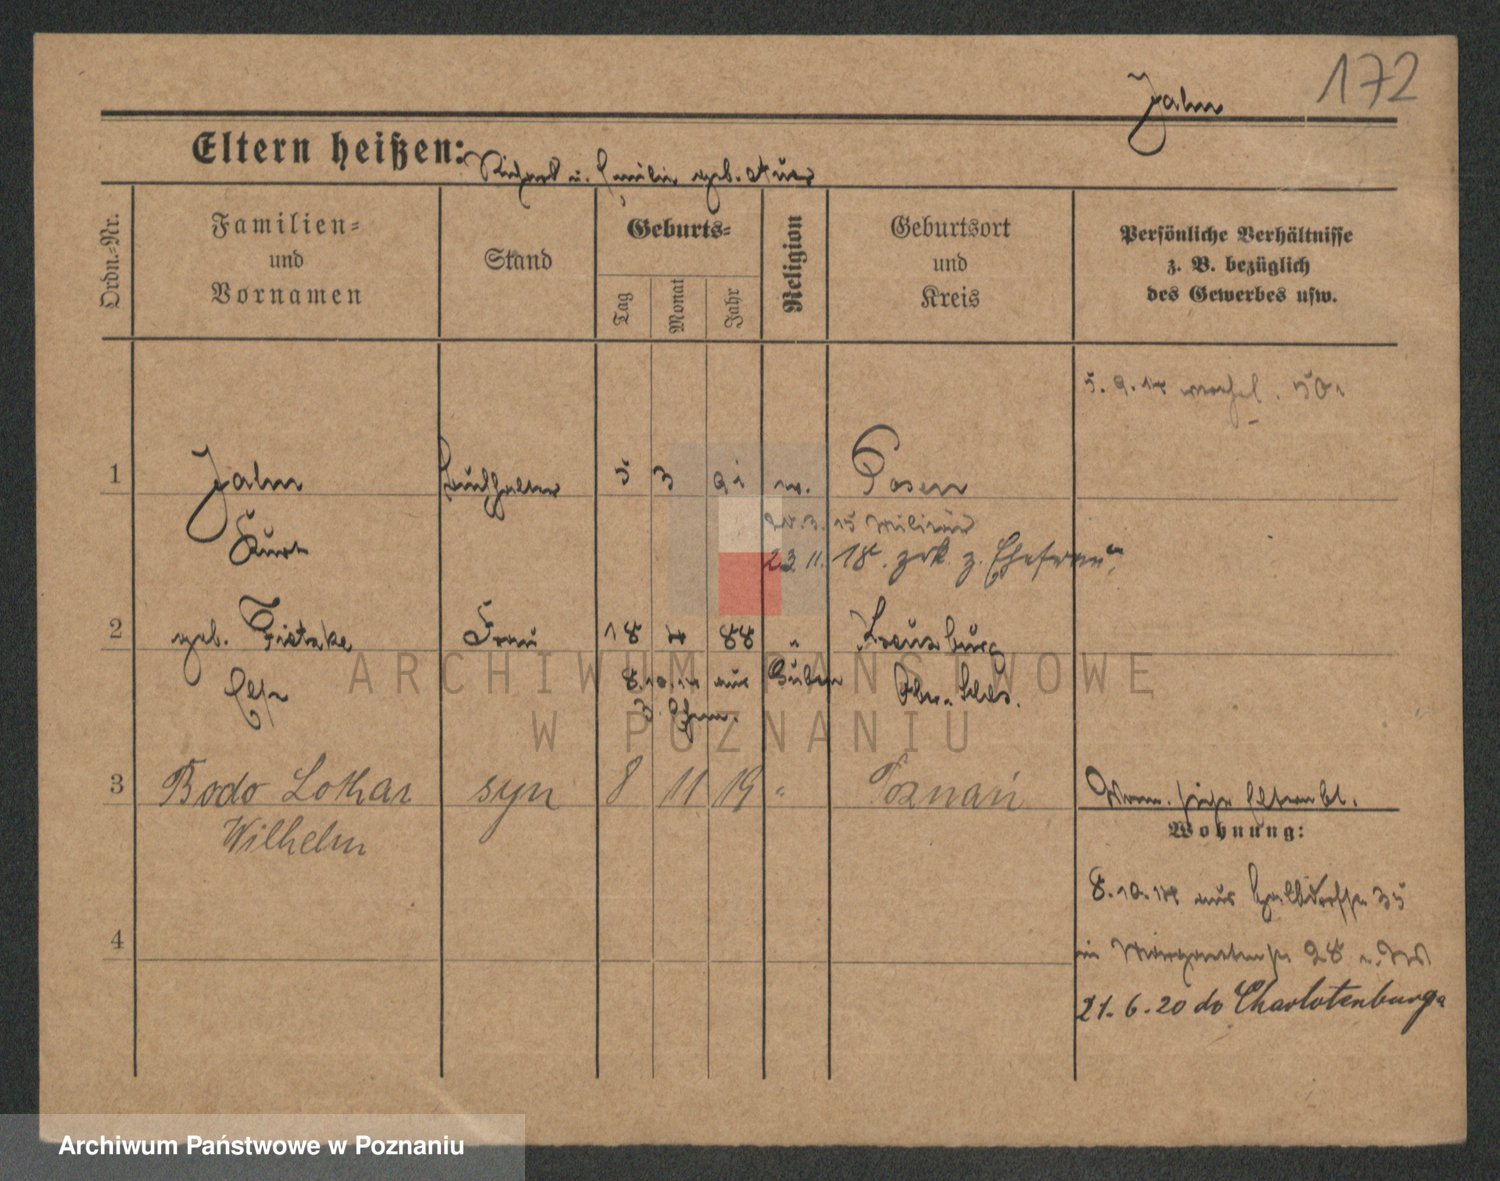 172
Jahn
Eltern heißen: Richard u. Emilie geb.
Ordn.-Nr.
Familien-
und
Vornamen
Stand
Geburts-
Tag
Monat
Jahr
Religion
Geburtsort
und
Kreis
Persönliche Verhältnisse
z. B. bezüglich
des Gewerbes usw.
5. 9. 14
1 Jahn Buchhalter 5 3 91 Posen
Kurt
15 Militär
23. 11. 18. zrk. z. Ehefrau
2 geb. Frau 18 88 " Kreuzburg
Else
8.10.14 aus Guben
Ober-Schles.
3 Bodo Lothar syn 8 11 19 " Poznań
Wilhelm
Wohnung:
8.10.14 aus 35
in Margaretenstr 28
21. 6. 20 do Charlotenburga
4
ARCHIWUM PAŃSTWOWE
W POZNANIU
Archiwum Państwowe w Poznaniu